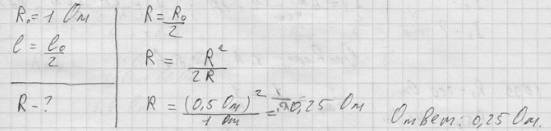 R₀ = 1 Ом
l = l₀/2
R - ?
R = R₀/2
R = R²/2R
R = (0,5 Ом)²/1 Ом = 0,25 Ом
Ответ: 0,25 Ом.